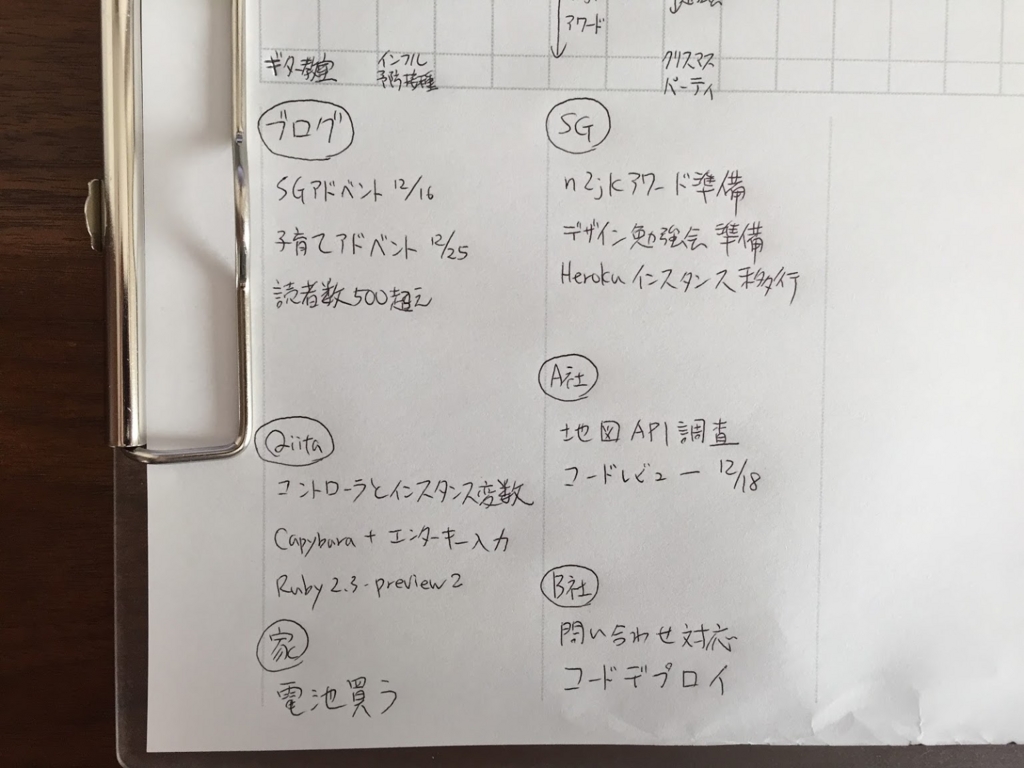 アワード
ギター教室
インフル
予防接種
クリスマス
パーティ
ブログ
SGアドベント 12/16
子育てアドベント 12/25
読者数500超え
Qiita
コントローラとインスタンス変数
Capybara + エンターキー入力
Ruby 2.3-preview2
家
電池買う
SG
n2jkアワード準備
デザイン勉強会 準備
Heroku インスタンス移行
A社
地図 API 調査
コードレビュー 12/18
B社
問い合わせ対応
コードデプロイ